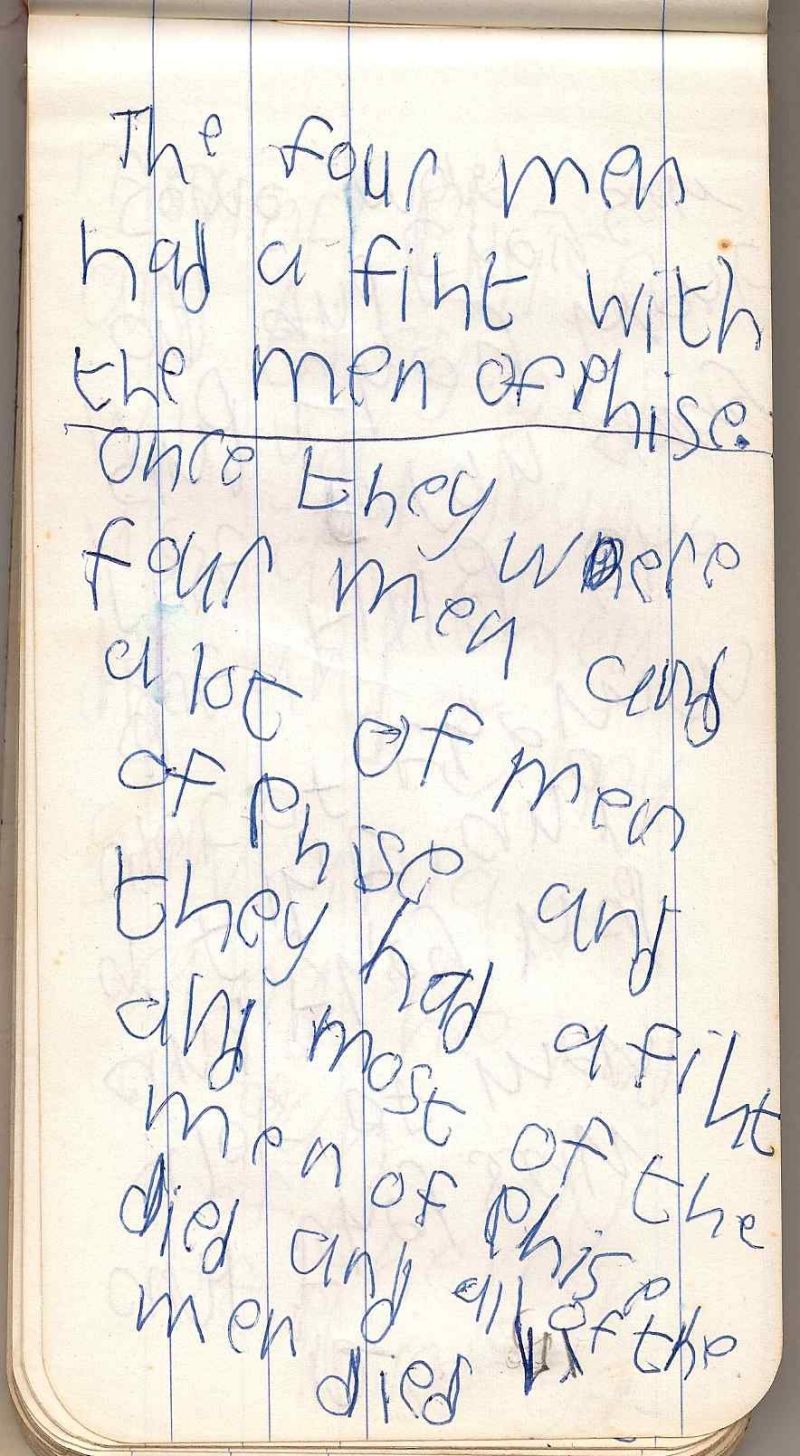 The four men
had a fiht with
the men of phise.
once they where
four men and
a lot of men
of phise and
they had a fiht
and most of the
men of phise
died and all of the
men died